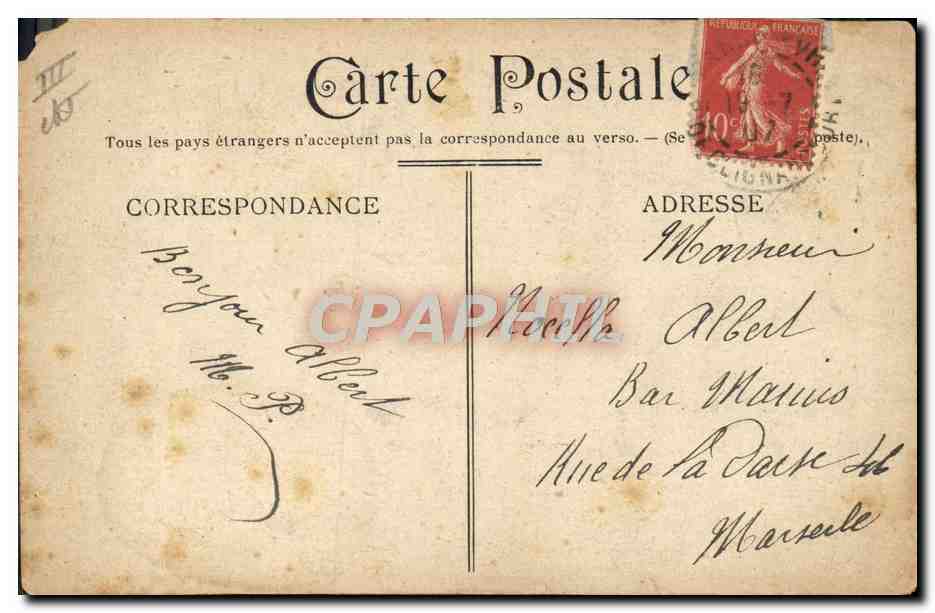 III
Carte Postale
RÉPUBLIQUE FRANÇAISE
10c
POSTES
Tous les pays étrangers n'acceptent pas la correspondance au verso. — (Se poste).
CORRESPONDANCE
Bonjour
Albert
M. P.
ADRESSE
Monsieur
Nocella Albert
Bar Marius
Rue de la Darse
Marseille
CPAPHIL